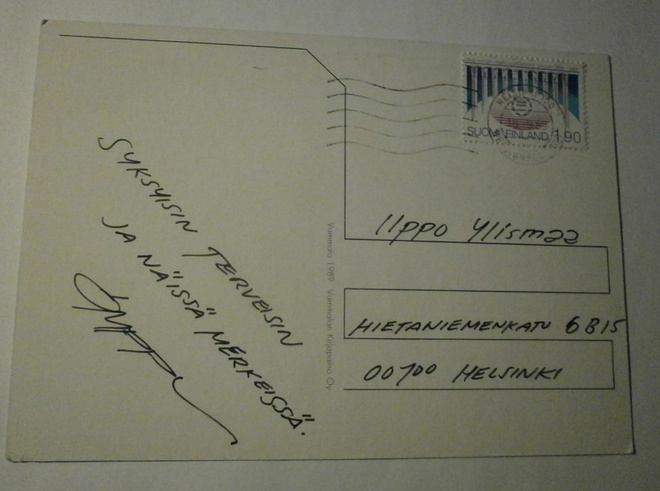 SYKSYISIN TERVEISIN
JA NÄISSÄ MERKEISSÄ.
Vammala 1989 Vammalan Kirjapaino Oy
HELSINKI
SUOMI FINLAND 1,90
Ilppo Ylismaa
HIETANIEMENKATU 6 B 15
00100 HELSINKI